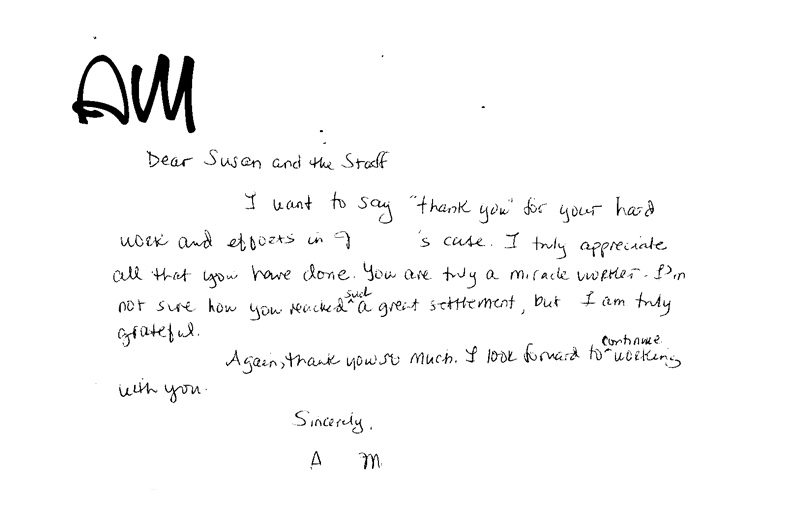 AM
Dear Susan and the Staff
I want to say "thank you" for your hard
work and efforts in 's case. I truly appreciate
all that you have done. You are truly a miracle worker. I'm
not sure how you reached such a great settlement, but I am truly
grateful.
Again, thank you so much. I look forward to continue working
with you.
Sincerely,
A M.